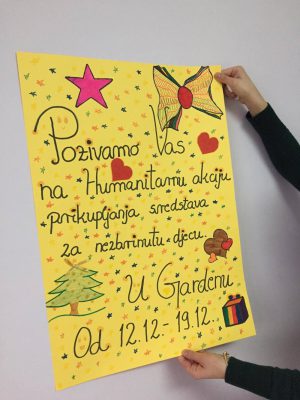 Pozivamo Vas
na Humanitarnu akciju
prikupljanja sredstava
za nezbrinutu djecu.
U Gardenu
Od 12.12.-19.12..